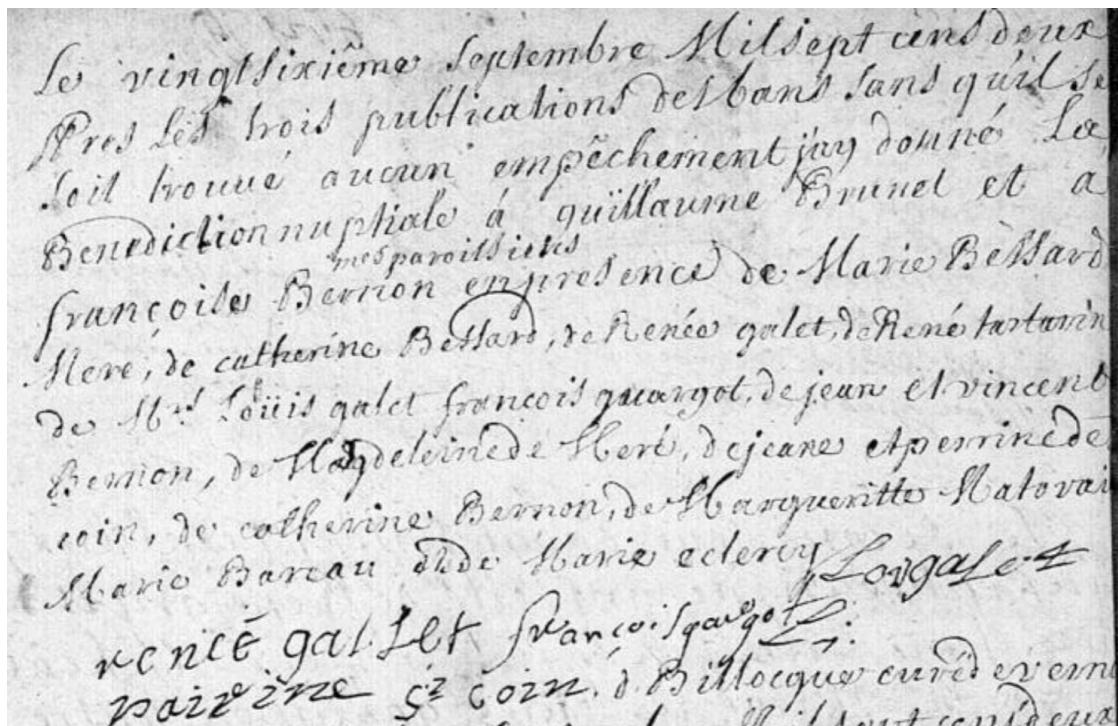 Le vingtsixiême septembre Mil sept cens deux
Apres les trois publications des bans sans qu'il se
soit trouué aucun empêchement j'ay donné La
Benediction nuptiale á guillaume Brunet et a
mes paroissiens
françoise Bernon en presence de Marie Bessard
Mere, de catherine Bessard, de Renée galet, de René tartarin
de Mrs Loüis galet francois guargot, de jean et vincent
Bernon, de Magdeleine de Meré, de jeane et perrine de
coin, de catherine Bernon, de Margueritte
Marie Bareau de Marie eclercy Lovgalet
rencé gallet françois gargot
coin, d. Billocque curé de